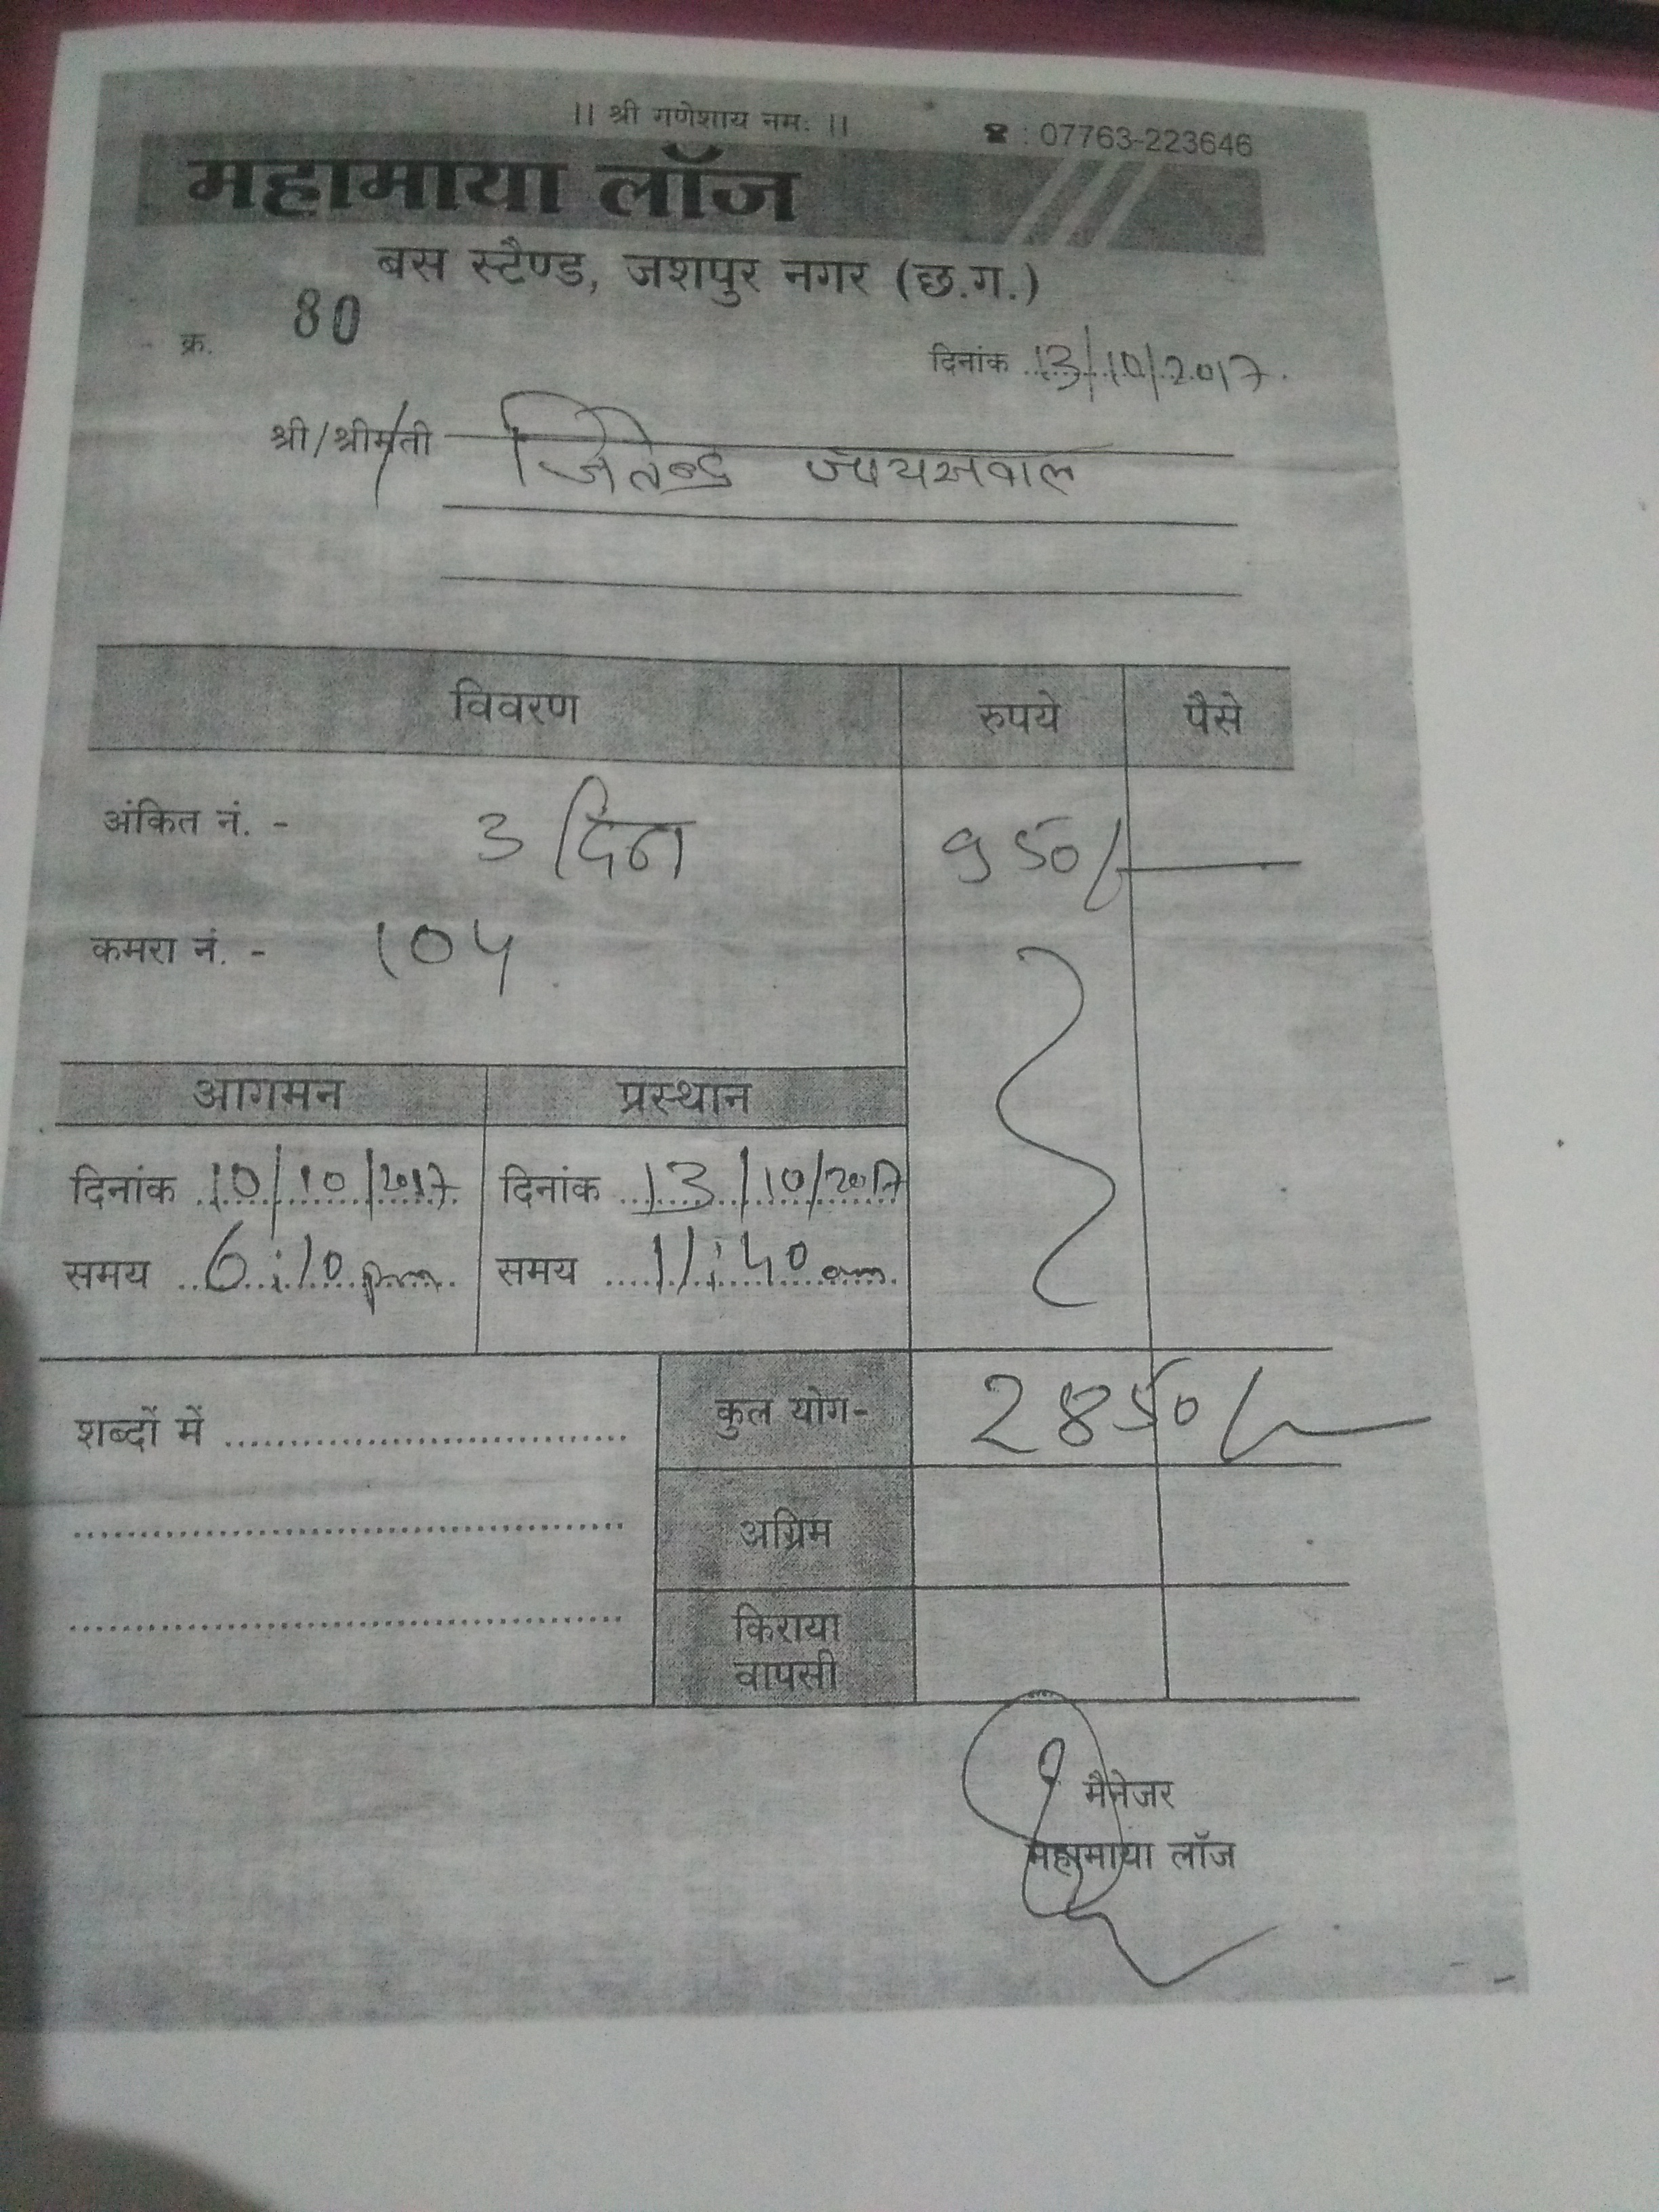 || श्री गणेशाय नमः ||
☎ : 07763-223646
महामाया लॉज
बस स्टैण्ड, जशपुर नगर (छ.ग.)
क्र. 80
दिनांक 13/10/2017
श्री/श्रीमती जितेन्द्र जायसवाल
विवरण रुपये पैसे
अंकित नं. - 3 दिन 950/-
कमरा नं. - 104
आगमन प्रस्थान
दिनांक 10/10/2017 दिनांक 13/10/2017
समय 6:10 pm समय 11:40 am
शब्दों में
कुल योग- 2850/-
अग्रिम
किराया
वापसी
मैनेजर
महामाया लॉज